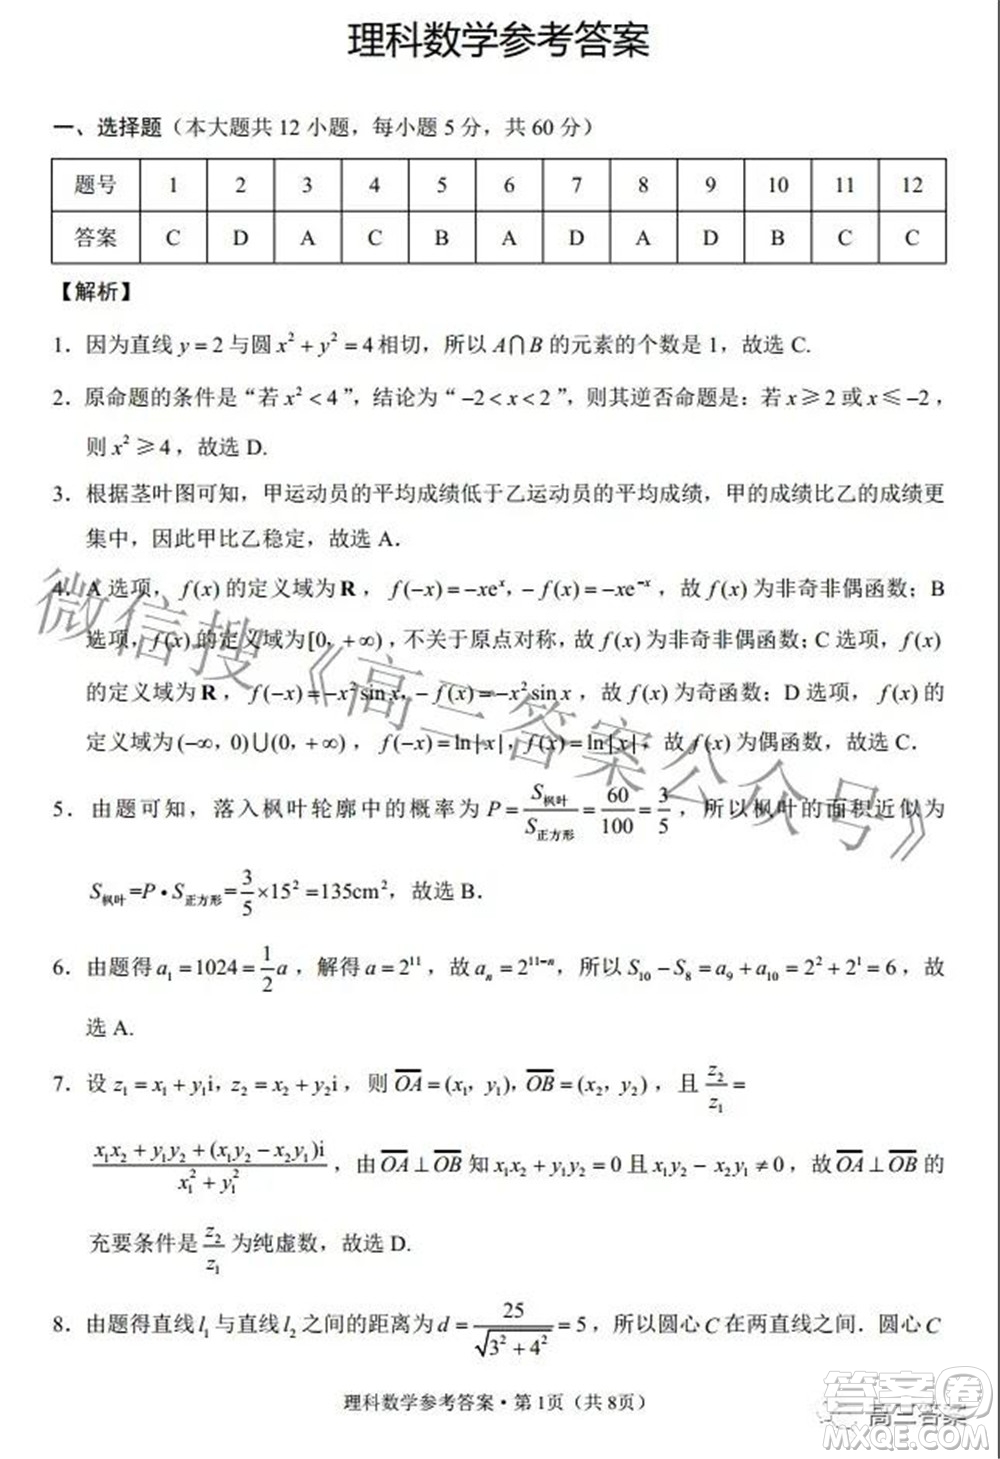 理科数学参考答案
一、选择题（本大题共 12 小题，每小题 5 分，共 60 分）
题号 1 2 3 4 5 6 7 8 9 10 11 12
答案 C D A C B A D A D B C C
【解析】
1．因为直线 y＝2 与圆 x²＋y²＝4 相切，所以 A∩B 的元素的个数是 1，故选 C.
2．原命题的条件是“若 x²＜4”，结论为“−2＜x＜2”，则其逆否命题是：若 x≥2 或 x≤−2，
则 x²≥4，故选 D.
3．根据茎叶图可知，甲运动员的平均成绩低于乙运动员的平均成绩，甲的成绩比乙的成绩更
集中，因此甲比乙稳定，故选 A．
4．A 选项，f(x) 的定义域为 R，f(−x)=−xeˣ，−f(x)=−xe⁻ˣ，故 f(x) 为非奇非偶函数；B
选项，f(x) 的定义域为[0，+∞)，不关于原点对称，故 f(x) 为非奇非偶函数；C 选项，f(x)
的定义域为 R，f(−x)=−x²sin x，−f(x)=−x²sin x，故 f(x) 为奇函数；D 选项，f(x) 的
定义域为(−∞，0)∪(0，+∞)，f(−x)=ln|x|，f(x)=ln|x|，故 f(x) 为偶函数，故选 C．
5．由题可知，落入枫叶轮廓中的概率为 P=S枫叶/S正方形=60/100=3/5，所以枫叶的面积近似为
S枫叶=P•S正方形=3/5×15²=135cm²，故选 B．
6．由题得 a₁=1024=1/2 a，解得 a=2¹¹，故 aₙ=2¹¹⁻ⁿ，所以 S₁₀−S₈=a₉+a₁₀=2²+2¹=6，故
选 A.
7．设 z₁=x₁+y₁i，z₂=x₂+y₂i，则 OA=(x₁，y₁)，OB=(x₂，y₂)，且 z₂/z₁=
(x₁x₂+y₁y₂+(x₁y₂−x₂y₁)i)/(x₁²+y₁²)，由 OA⊥OB 知 x₁x₂+y₁y₂=0 且 x₁y₂−x₂y₁≠0，故 OA⊥OB 的
充要条件是 z₂/z₁ 为纯虚数，故选 D.
8．由题得直线 l₁ 与直线 l₂ 之间的距离为 d=25/√(3²+4²)=5，所以圆心 C 在两直线之间．圆心 C
理科数学参考答案·第 1页（共 8页）
微信搜《高三答案公众号》
答案卷
高三答案
MXQE.COM